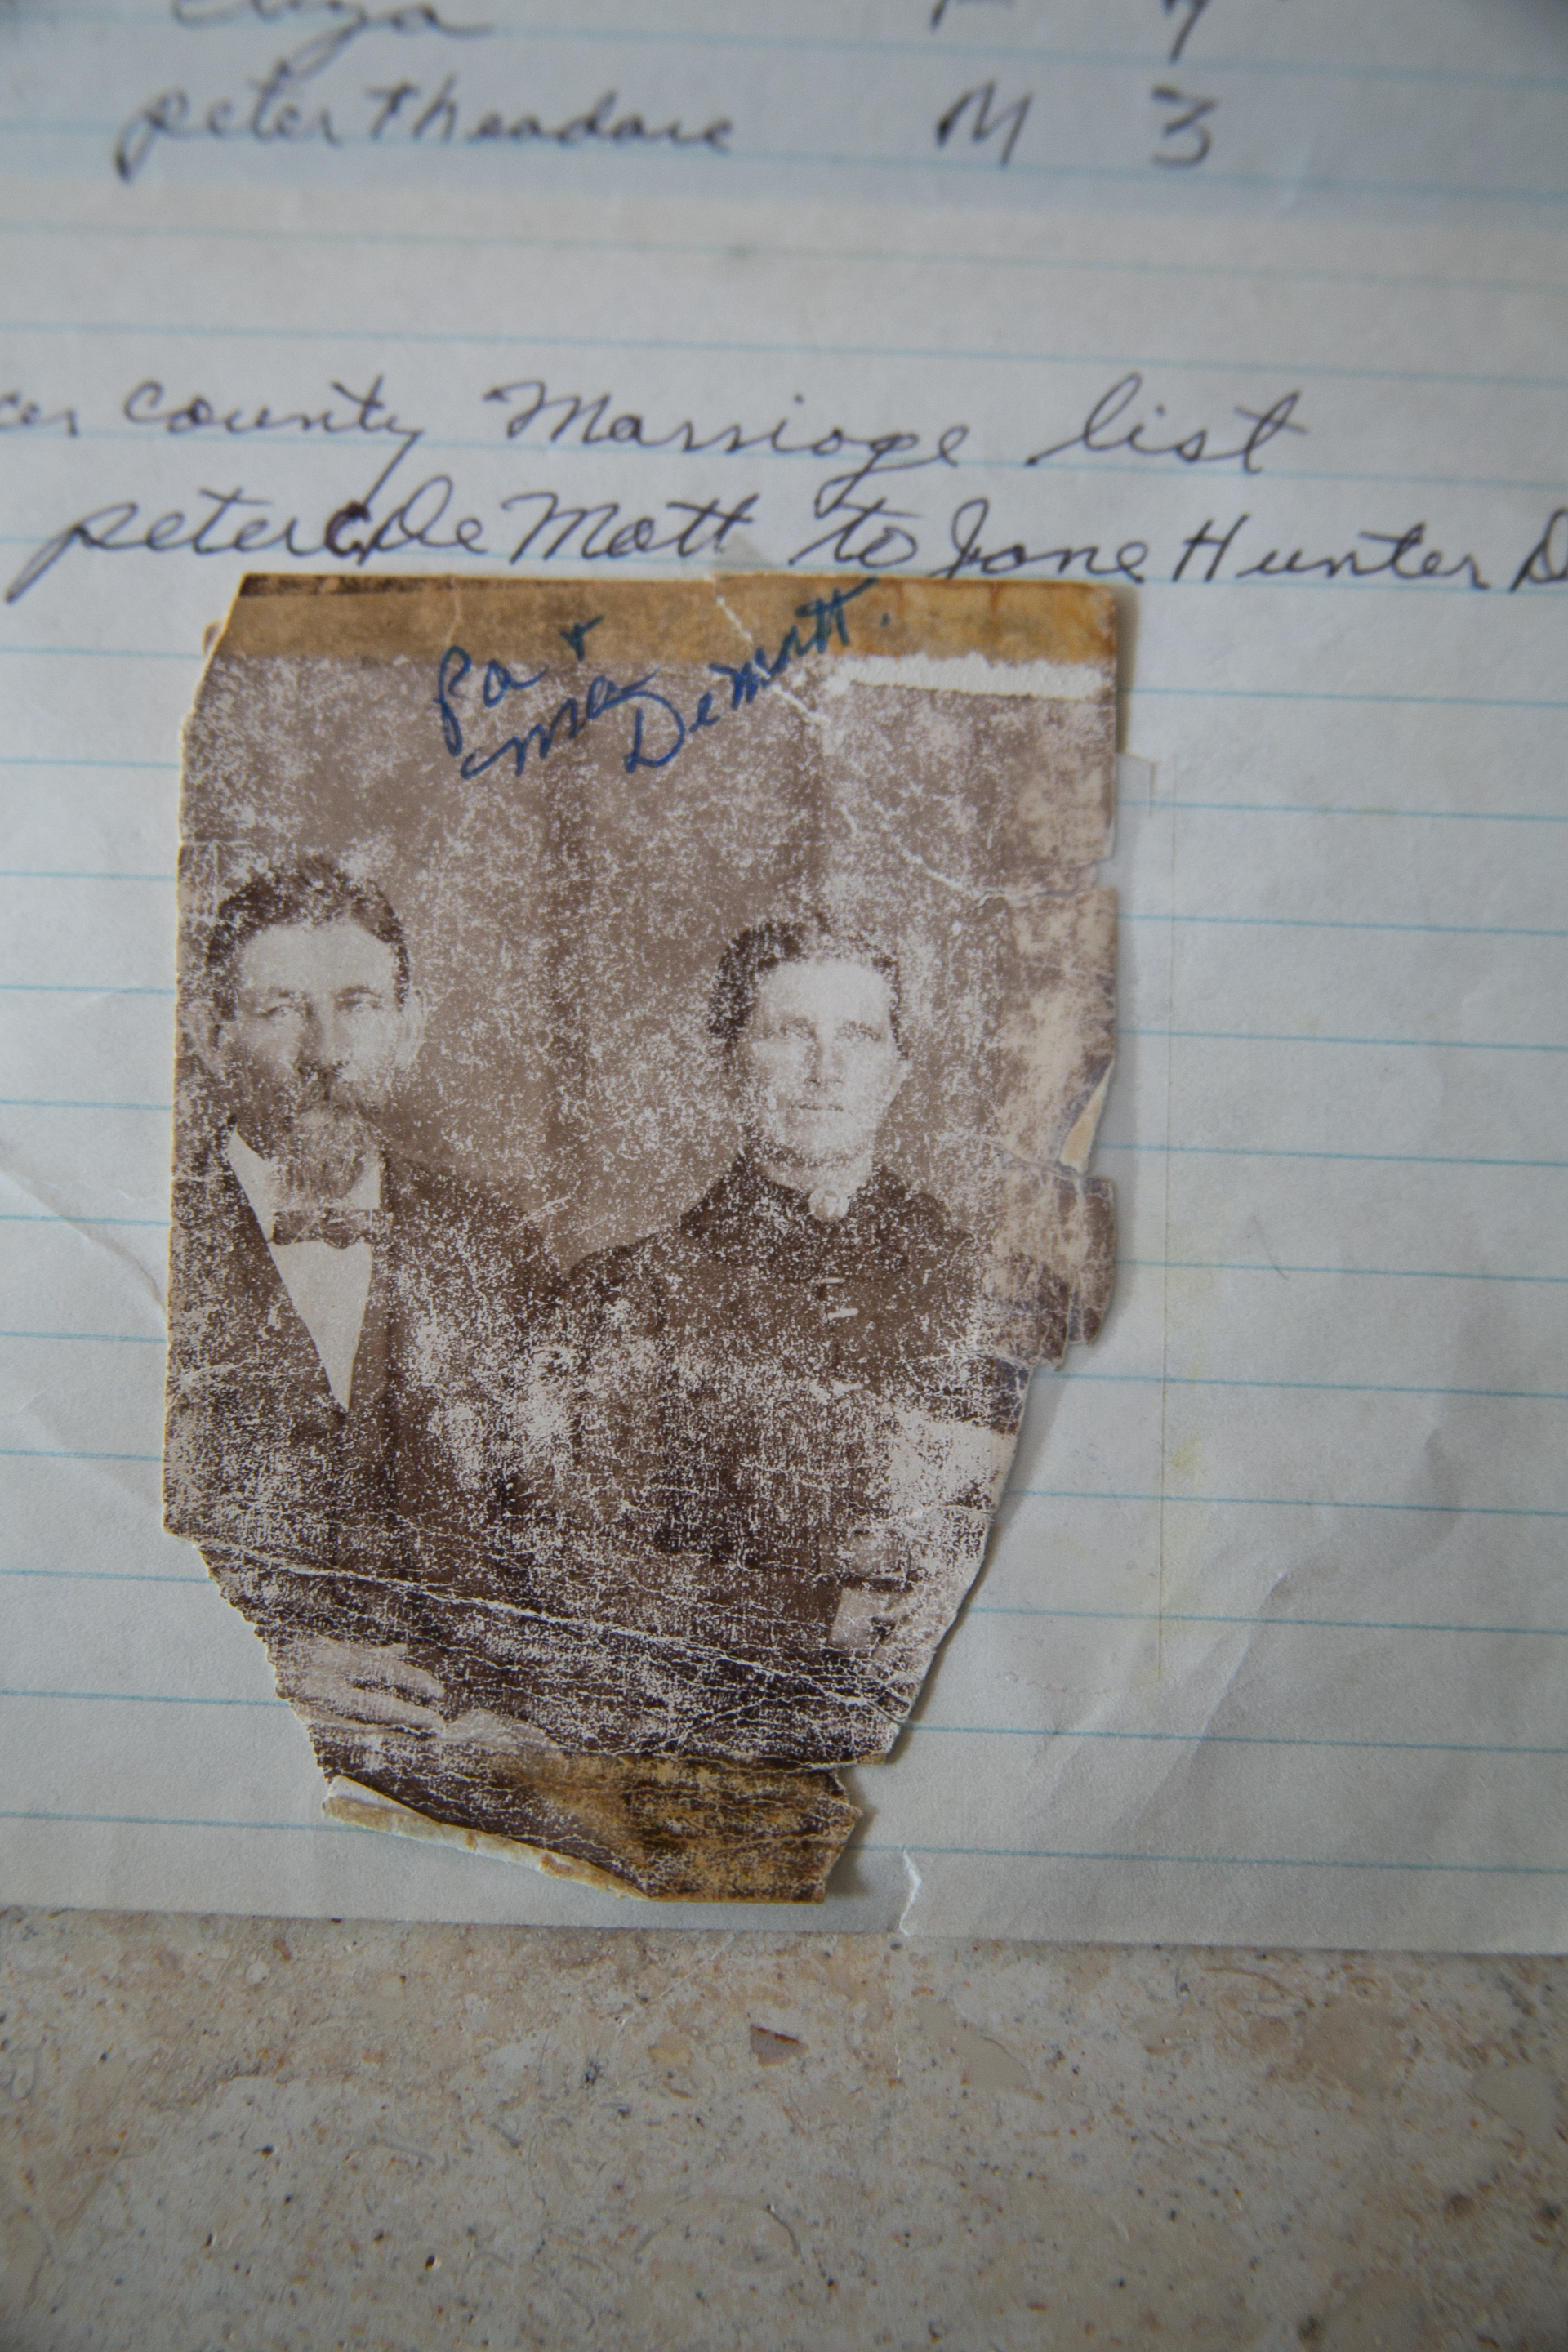 peter Theadore M 3
county Marrioge list
peter C De Mott to Jane Hunter
Pa +
ma
DeMott.